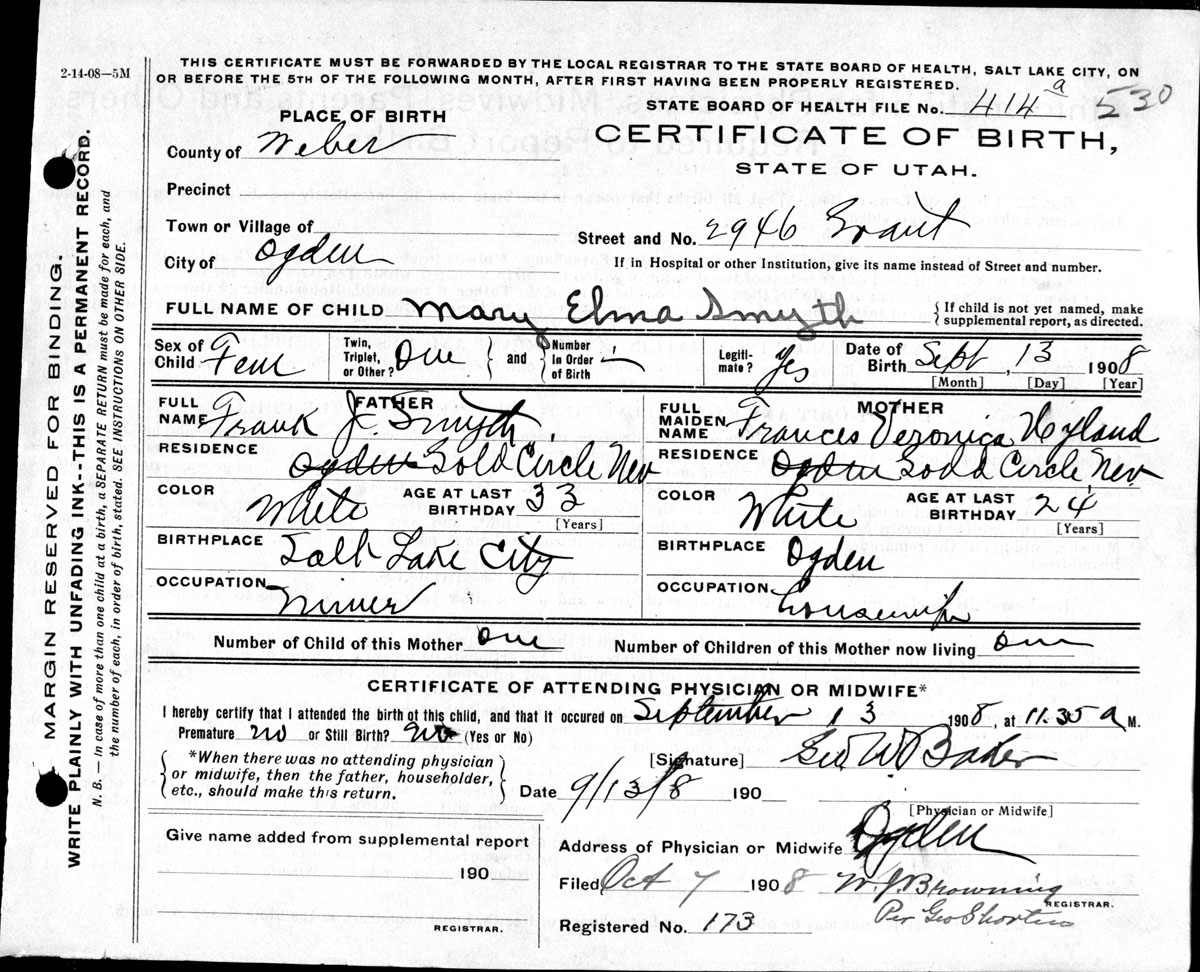 2-14-08—5M
THIS CERTIFICATE MUST BE FORWARDED BY THE LOCAL REGISTRAR TO THE STATE BOARD OF HEALTH, SALT LAKE CITY, ON
OR BEFORE THE 5TH OF THE FOLLOWING MONTH, AFTER FIRST HAVING BEEN PROPERLY REGISTERED.
STATE BOARD OF HEALTH FILE No. 414 a 530
PLACE OF BIRTH
CERTIFICATE OF BIRTH,
STATE OF UTAH.
County of Weber
Precinct
Town or Village of
Street and No. 2946 Grant
City of Ogden
If in Hospital or other Institution, give its name instead of Street and number.
FULL NAME OF CHILD Mary Elma Smyth { If child is not yet named, make supplemental report, as directed.
Sex of Child Fem Twin, Triplet, or Other? One } and { Number in Order of Birth Legiti-mate? Yes Date of Birth Sept, 13 1908
[Month] [Day] [Year]
FATHER
FULL NAME Frank J. Smyth
RESIDENCE Ogden Gold Circle Nev
COLOR White AGE AT LAST BIRTHDAY 33 [Years]
BIRTHPLACE Salt Lake City
OCCUPATION Miner
MOTHER
FULL MAIDEN NAME Frances Veronica Hyland
RESIDENCE Ogden Gold Circle, Nev
COLOR White AGE AT LAST BIRTHDAY 24 [Years]
BIRTHPLACE Ogden
OCCUPATION Housewife
Number of Child of this Mother One Number of Children of this Mother now living One
CERTIFICATE OF ATTENDING PHYSICIAN OR MIDWIFE*
I hereby certify that I attended the birth of this child, and that it occured on September 13 1908, at 11.35 a M.
Premature no or Still Birth? No (Yes or No)
{ *When there was no attending physician
or midwife, then the father, householder,
etc., should make this return. }
[Signature] Geo W. Baker
Date 9/13/8 190
[Physician or Midwife]
Give name added from supplemental report
190
REGISTRAR.
Address of Physician or Midwife Ogden
Filed Oct 7 1908 W. J. Browning
REGISTRAR.
Per Geo
Registered No. 173
MARGIN RESERVED FOR BINDING.
WRITE PLAINLY WITH UNFADING INK--THIS IS A PERMANENT RECORD.
N. B. — In case of more than one child at a birth, a SEPARATE RETURN must be made for each, and
the number of each, in order of birth, stated. SEE INSTRUCTIONS ON OTHER SIDE.